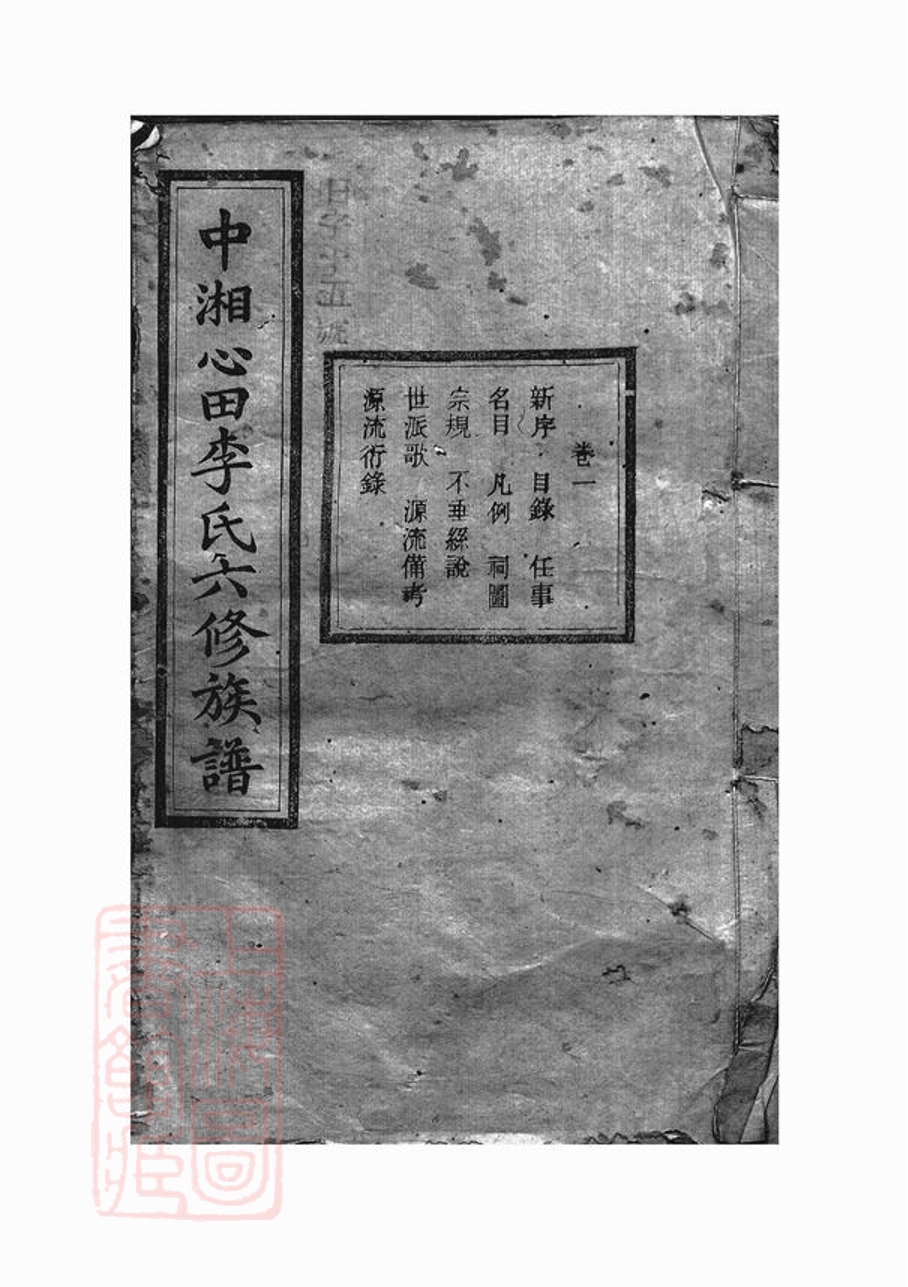 卷一
新序 目錄 任事
名目 凡例 祠圖
宗規 不垂綠說
世派歌 源流備考
源流衍錄
字十五號
中湘心田李氏六修族譜
上海圖書館藏